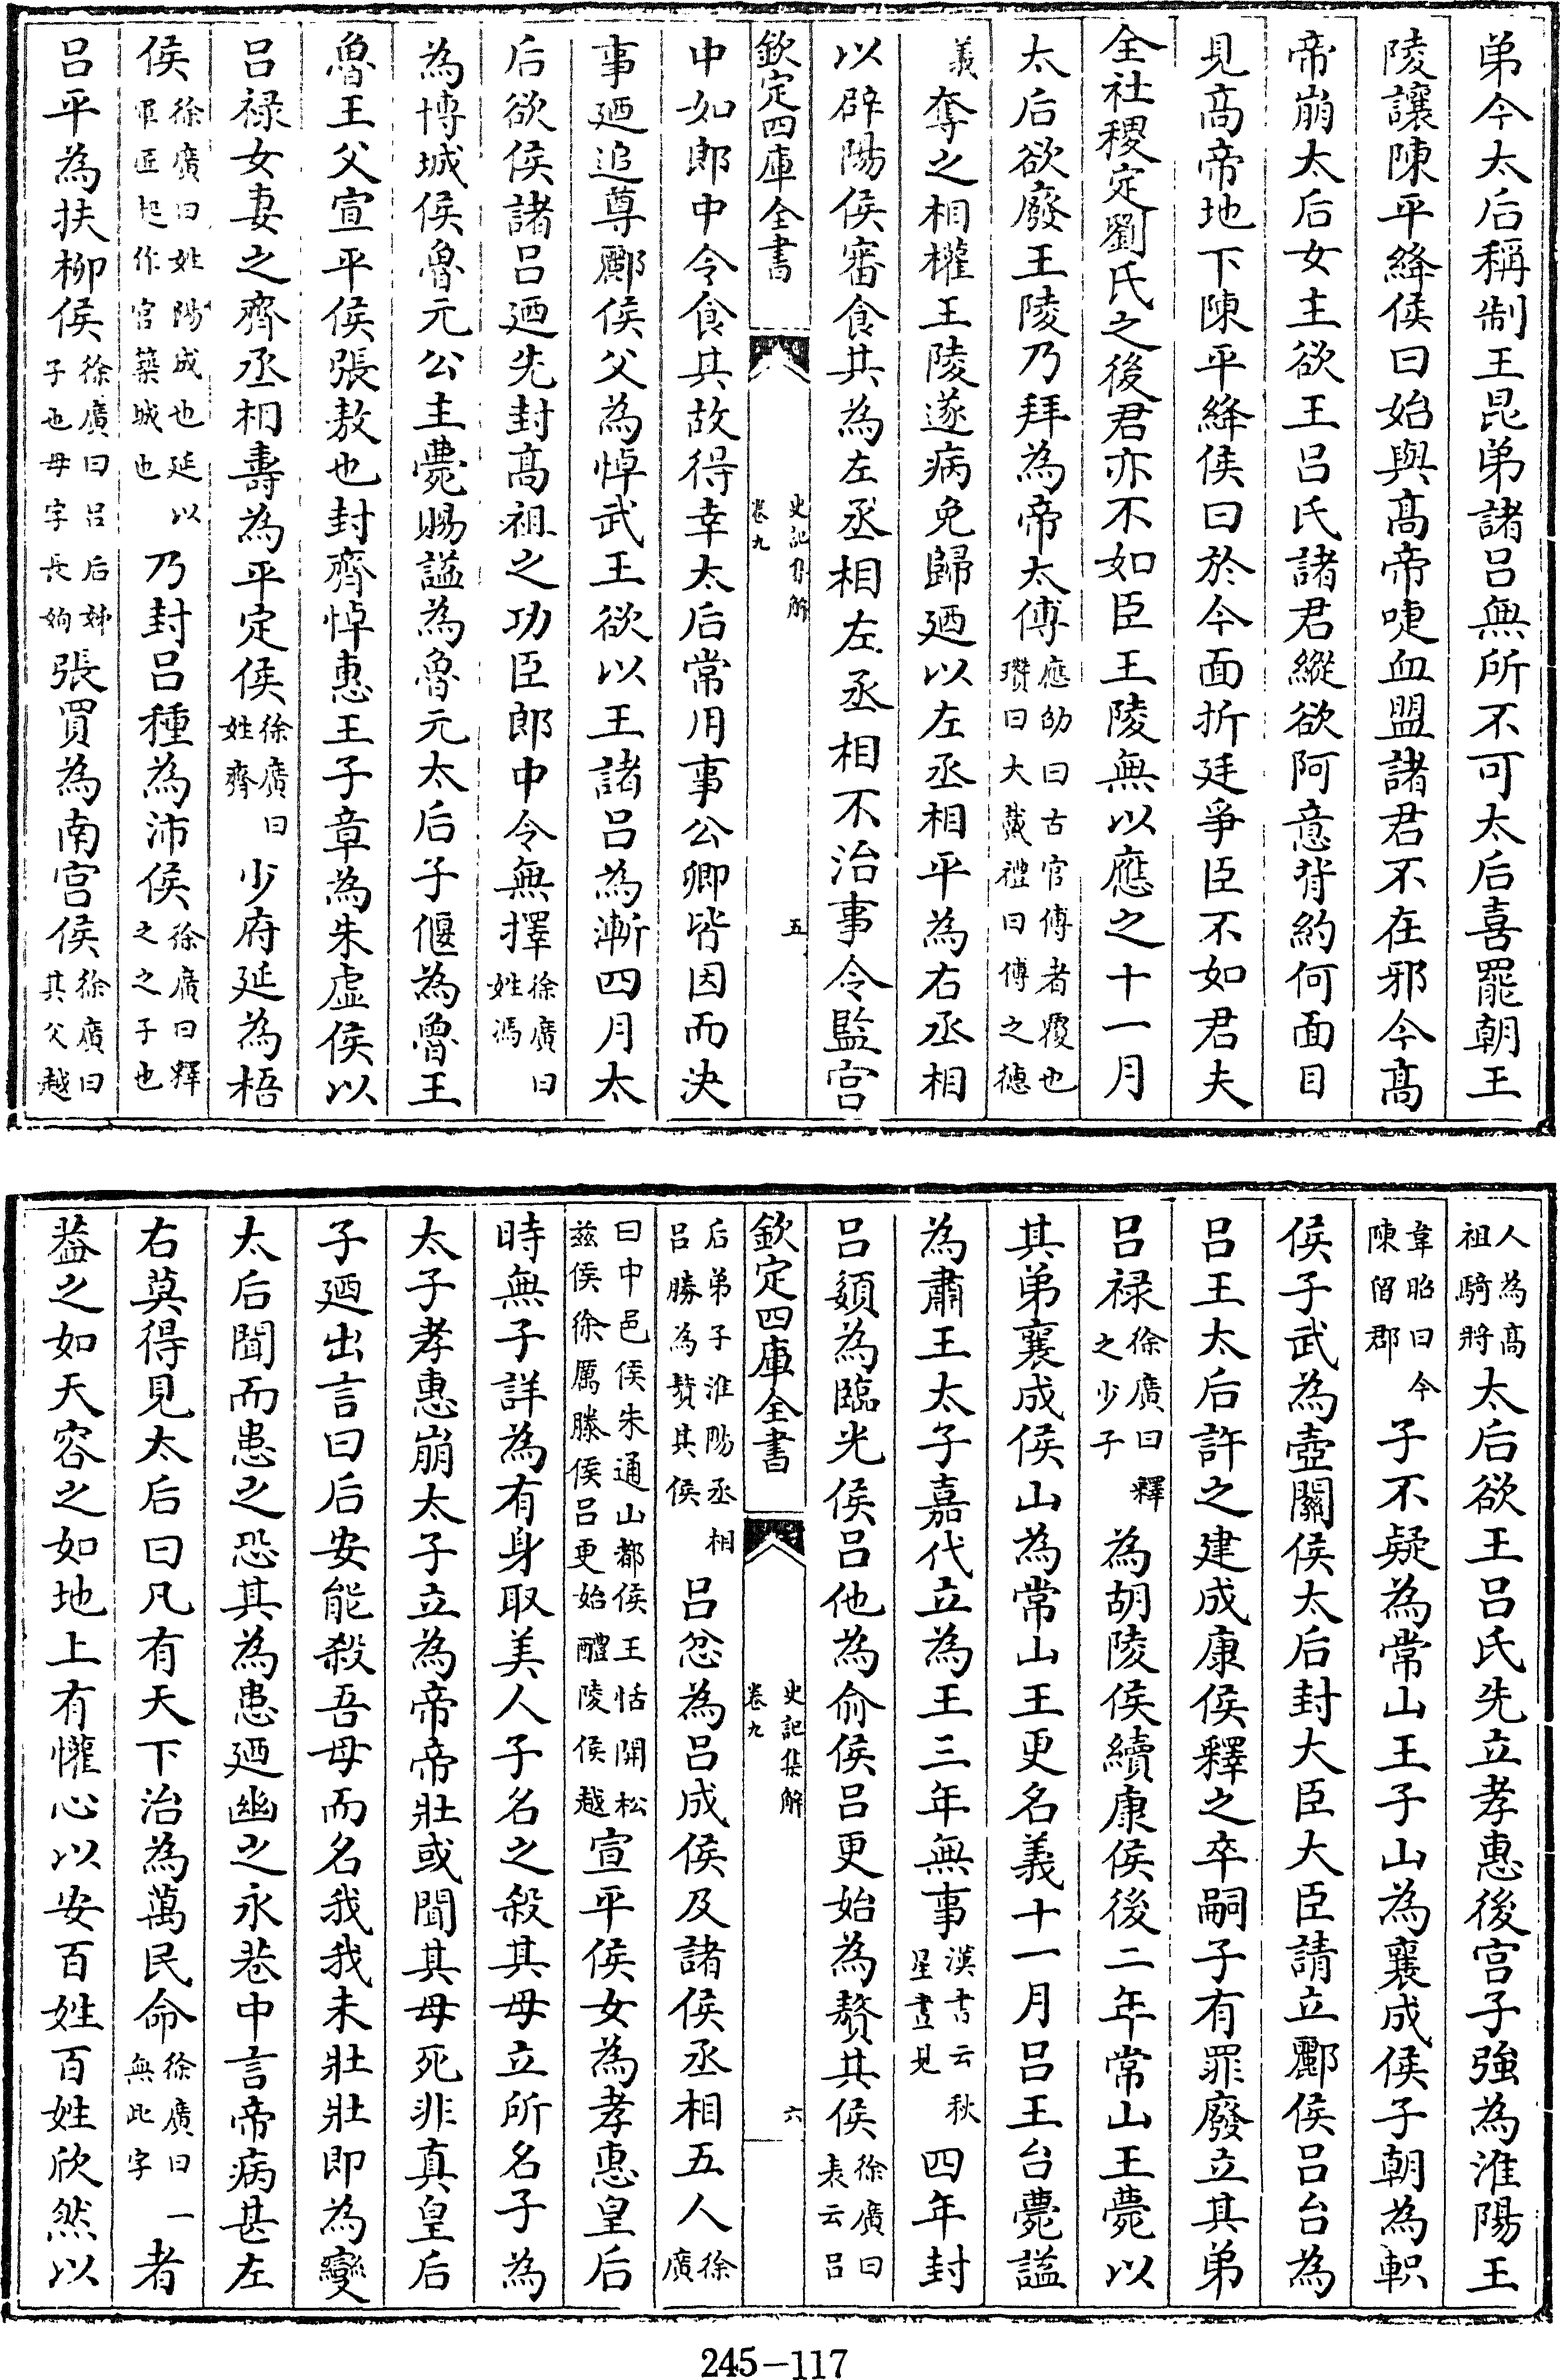 弟今太后稱制王昆弟諸呂無所不可太后喜罷朝王
陵讓陳平絳侯曰始與髙帝啑血盟諸君不在邪今髙
帝崩太后女主欲王呂氏諸君縱欲阿意背約何面目
見髙帝地下陳平絳侯曰於今面折廷爭臣不如君夫
全社稷定劉氏之後君亦不如臣王陵無以應之十一月
太后欲廢王陵乃拜為帝太傅應劭曰古官傅者覆也瓚曰大戴禮曰傅之德
義奪之相權王陵遂病免歸廼以左丞相平為右丞相
以辟陽侯審食其為左丞相左丞相不治事令監宫
欽定四庫全書 史記集解 卷九 五
中如郎中令食其故得幸太后常用事公卿皆因而決
事廼追尊酈侯父為悼武王欲以王諸呂為漸四月太
后欲侯諸呂廼先封髙祖之功臣郎中令無擇徐廣曰姓馮
為博城侯魯元公主薨賜謚為魯元太后子偃為魯王
魯王父宣平侯張敖也封齊悼惠王子章為朱虛侯以
呂禄女妻之齊丞相壽為平定侯徐廣曰姓齊少府延為梧
侯徐廣曰姓陽成也延以軍匠起作官築城也乃封呂種為沛侯徐廣曰釋之之子也
呂平為扶柳侯徐廣曰呂后姊子也母字長姁張買為南宫侯徐廣曰其父越
人為髙祖騎將太后欲王呂氏先立孝惠後宫子強為淮陽王
韋昭曰今陳留郡子不疑為常山王子山為襄成侯子朝為軹
侯子武為壺關侯太后封大臣大臣請立酈侯呂台為
呂王太后許之建成康侯釋之卒嗣子有罪廢立其弟
呂禄徐廣曰釋之少子為胡陵侯續康侯後二年常山王薨以
其弟襄成侯山為常山王更名義十一月呂王台薨謚
為肅王太子嘉代立為王三年無事漢書云秋星晝見四年封
呂嬃為臨光侯呂他為俞侯呂更始為贅其侯徐廣曰表云呂
欽定四庫全書 史記集解 卷九 六
后弟子淮陽丞相呂勝為贅其侯呂忿為呂成侯及諸侯丞相五人徐廣
曰中邑侯朱通山都侯王恬開松茲侯徐厲滕侯呂更始醴陵侯越宣平侯女為孝惠皇后
時無子詳為有身取美人子名之殺其母立所名子為
太子孝惠崩太子立為帝帝壯或聞其母死非真皇后
子廼出言曰后安能殺吾母而名我我未壯壯即為變
太后聞而患之恐其為患廼幽之永巷中言帝病甚左
右莫得見太后曰凡有天下治為萬民命徐廣曰一無此字者
葢之如天容之如地上有懽心以安百姓百姓欣然以
245-117